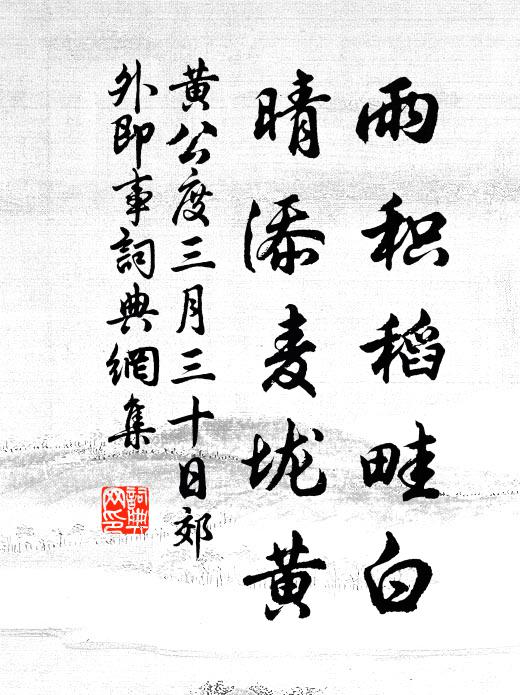 雨积稻畦白
晴添麦垅黄
黄公度三月三十日郊
外即事詞典網集
詞典
网印